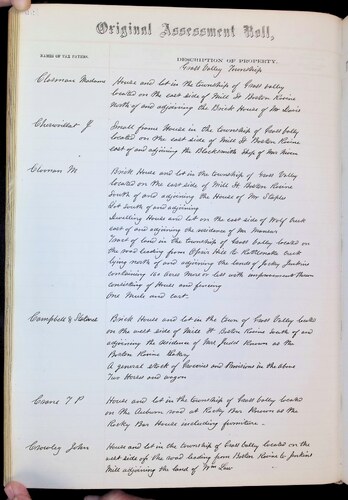 Original Assessment Roll,
NAMES OF TAX PAYERS.
DESCRIPTION OF PROPERTY.
Grass Valley Township
House and lot in the township of Grass Valley
located on the east side of Mill St Boston Ravine
north of and adjoining the Brick House of Mr Davis
J.
Small frame House in the township of Grass Valley
located on the east side of Mill St Boston Ravine
east of and adjoining the Blacksmith Shop of Mr
M
Brick House and lot in the township of Grass Valley
located on the east side of Mill St. Boston Ravine
South of and adjoining the House of Mr Staples
Lot south of and adjoining
Dwelling House and lot on the east side of Wolf Creek
east of and adjoining the residence of Mr
Tract of land in the township of Grass Valley located on
the road leading from Hill to Rattlesnake Creek
lying north of and adjoining the lands of Jenkins
containing 160 acres more or less with improvements thereon
consisting of House and fencing
One Mule and cart.
Campbell &
Brick House and lot in the town of Grass Valley located
on the west side of Mill St Boston Ravine south of and
adjoining the residence of Mr Judd known as the
Boston Ravine Bakery
A general stock of Groceries and Provisions in the above
Two Horses and wagon
Crane T P
House and lot in the township of Grass Valley located
on the Auburn road at Rocky Bar known as the
Rocky Bar House including furniture.
Crowley John
House and lot in the township of Grass Valley located on the
west side of the road leading from Boston Ravine to Jenkins
Mill adjoining the land of Wm